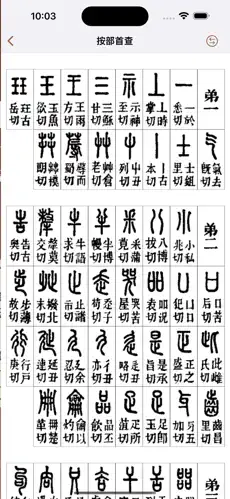 10:03
按部首查
弟一
一 於悉切
丄 時掌切
示 神至切
三 穌甘切
王 雨方切
玉 魚欲切
玨 古岳切
气 去旣切
士 鉏里切
丨 古本切
屮 丑列切
艸 倉老切
蓐 而蜀切
茻 模朗切
弟二
小 私兆切
八 博拔切
釆 蒲莧切
半 博幔切
牛 語求切
犛 莫交切
告 古奧切
口 苦后切
凵 口犯切
吅 況袁切
哭 苦屋切
走 子苟切
止 諸市切
癶 北末切
步 薄故切
此 雌氏切
正 之盛切
是 承旨切
辵 丑略切
彳 丑亦切
廴 余忍切
㢟 丑連切
行 戶庚切
齒 昌里切
牙 五加切
足 即玉切
疋 所菹切
品 丕飮切
龠 以灼切
冊 楚革切
弟三
㗊
舌
干
𧮫
只
㕯
句